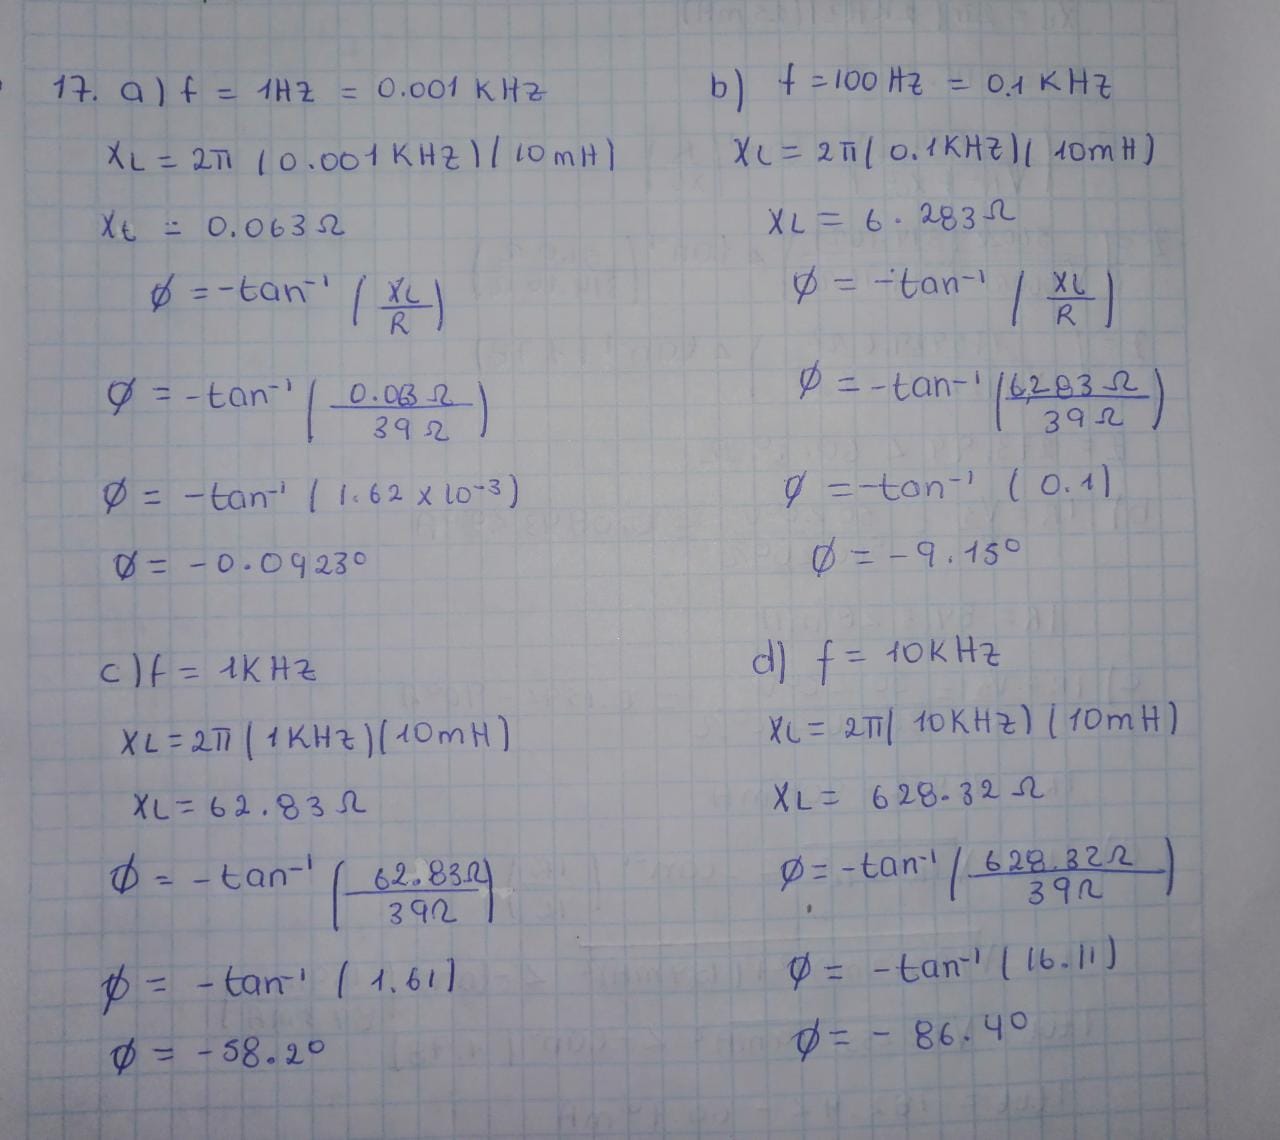 17. a) f = 1HZ = 0.001 KHZ
XL = 2π (0.001KHZ)(10mH)
XL = 0.063Ω
Ø = -tan⁻¹ (XL/R)
Ø = -tan⁻¹ (0.063Ω/39Ω)
Ø = -tan⁻¹ (1.62 x 10⁻³)
Ø = -0.0923°
b) f = 100 HZ = 0.1 KHZ
XL = 2π( 0.1KHZ)( 10mH)
XL = 6.283Ω
Ø = -tan⁻¹ (XL/R)
Ø = -tan⁻¹ (6.283Ω/39Ω)
Ø = -tan⁻¹ (0.1)
Ø = -9.15°
c) f = 1KHZ
XL = 2π (1KHZ)(10mH)
XL = 62.83Ω
Ø = -tan⁻¹ (62.83Ω/39Ω)
Ø = -tan⁻¹ (1.61)
Ø = -58.2°
d) f = 10KHZ
XL = 2π( 10KHZ) (10mH)
XL = 628.32Ω
Ø = -tan⁻¹ (628.32Ω/39Ω)
Ø = -tan⁻¹ (16.11)
Ø = -86.4°